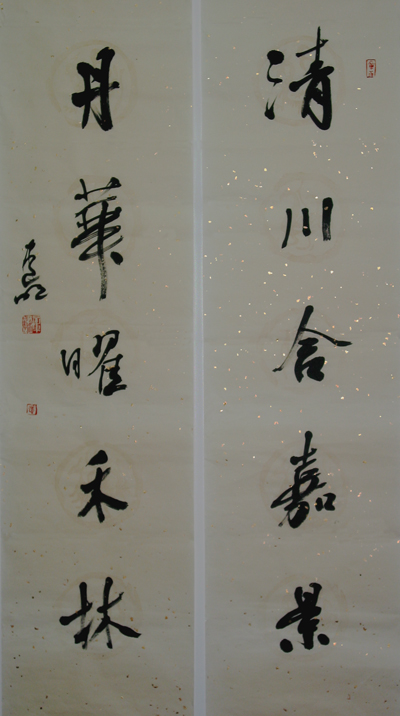 清川合嘉景
丹華曜禾林